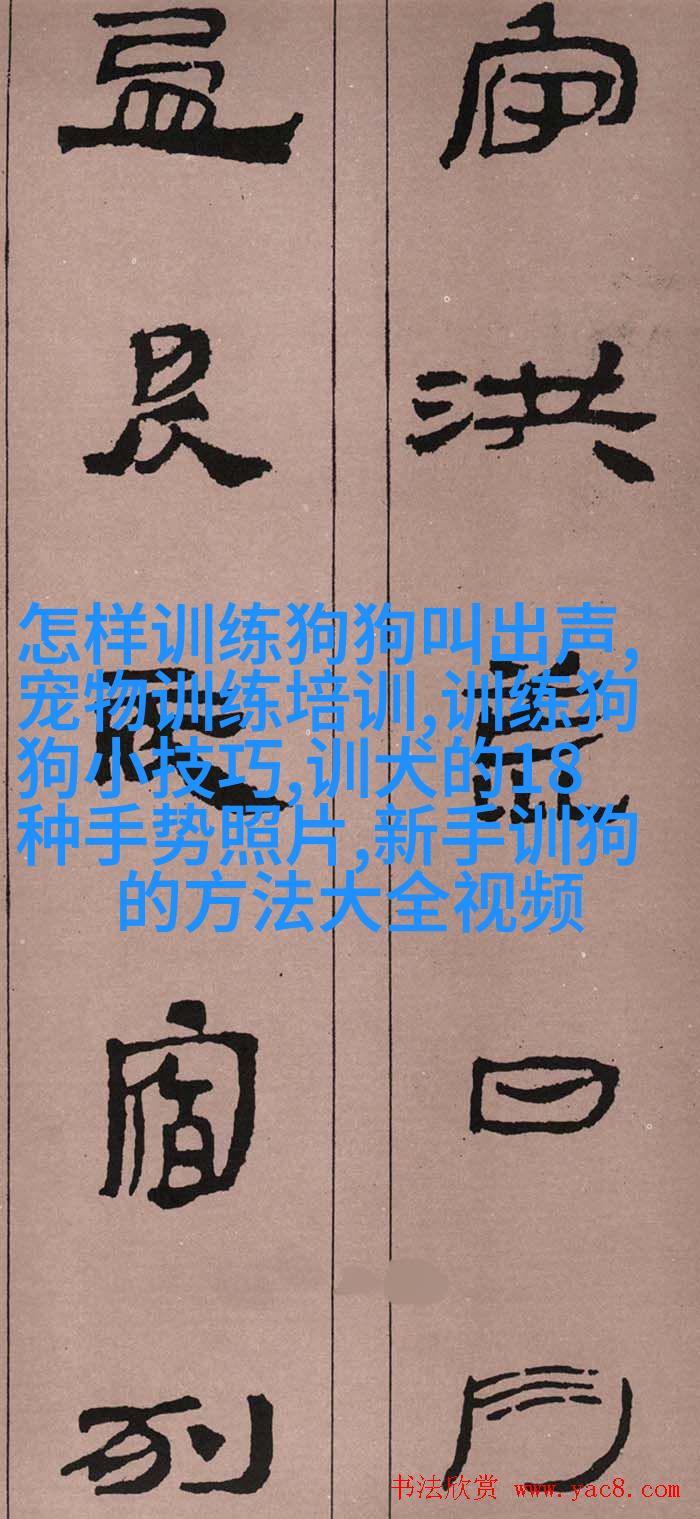 宙洪荒日月
盈昃辰宿列
怎样训练狗狗叫出声,
宠物训练培训,训练狗
狗小技巧,训犬的18
种手势照片,新手训狗
的方法大全视频
书法欣赏 www.yac8.com